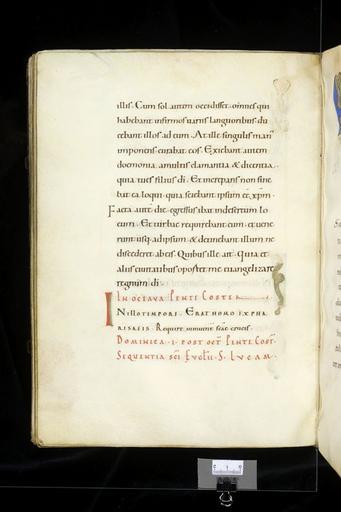 illis. Cum sol autem occidisset. omnes qui
habebant infirmos uariis languoribus. du
cebant illos ad eum. At ille singulis man
imponens curabat eos. Exiebant autem
doemonia a multis clamantia & dicentia.
quia tu es filius di. Et increpans non sine
bat ea loqui. quia sciebant ipsum ee xpm.
Facta aute die egressus ibat in desertum lo
cum. Et turbae requirebant eum. et uene
runt usq; ad ipsum. & detinebant illum ne
discederet ab eis. Quibus ille ait. Quia et
aliis ciuitatibus oportet me euangelizare
regnum di.
IN OCTAVA PENTECOSTE
IN ILLO TEMPORE. ERAT HOMO EX PHA
RISAEIS. Require inuentione scae crucis.
DOMINICA .I. POST OCT PENTECOST.
SEQUENTIA SCI EUGLII. S. LVCAM.